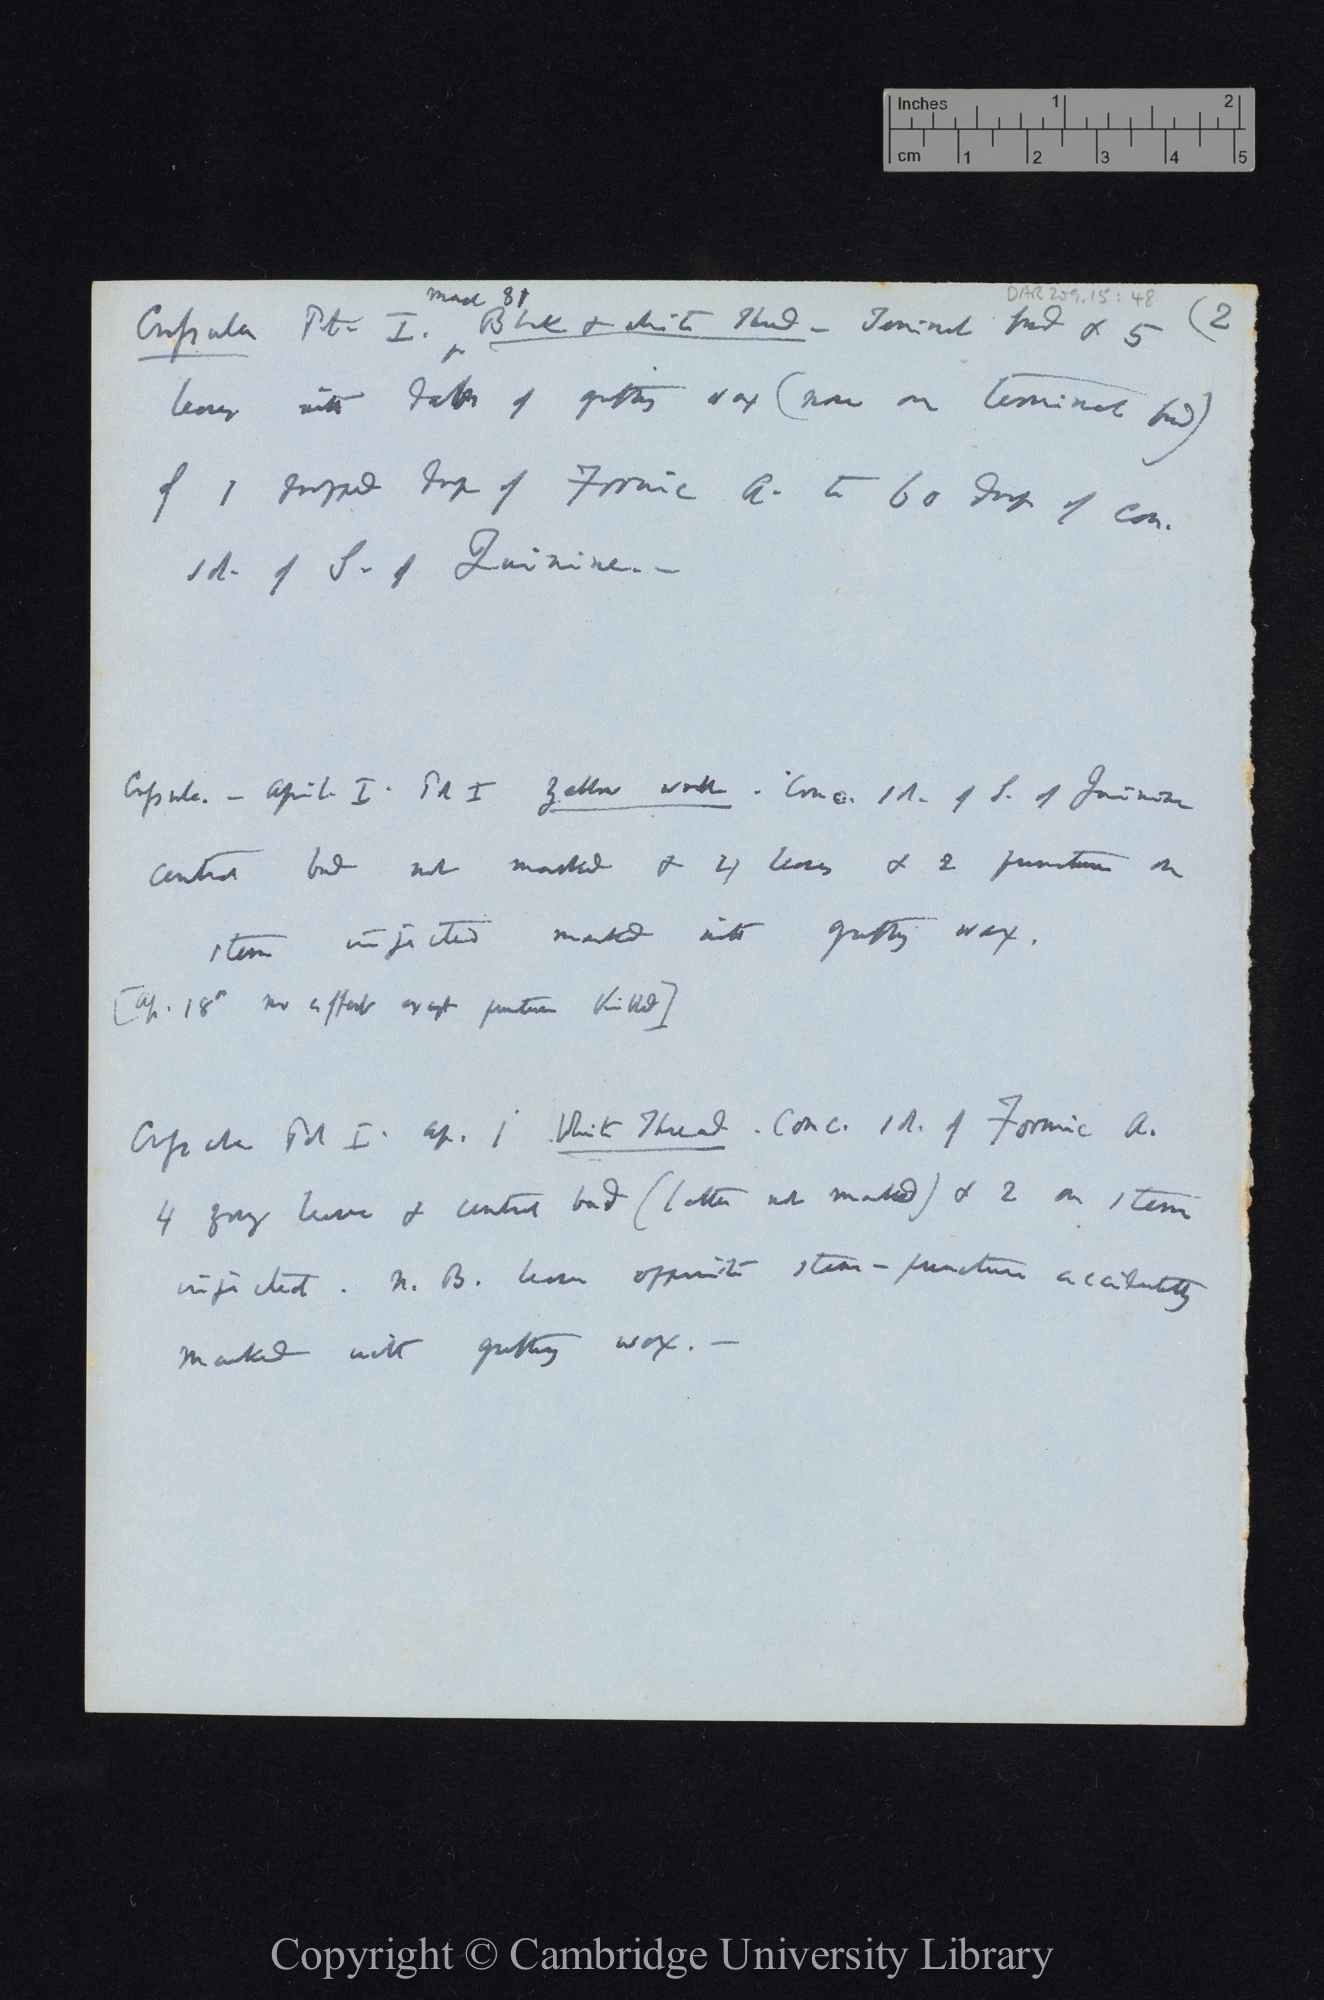 Inches 1 2
cm 1 2 3 4 5
DAR 209.15:48
(2
March 31
Crassula Pot I. Black & white Thread — Terminal bud & 5
leaves with dabs of grafting wax (none on terminal bud)
of 1 dropped drop of Formic A. to 60 drops of con.
sol. of S. of Quinine. —
Crassula. — April I. Pot I Yellow . Conc. sol. of S. of Quinine
central bud not marked & 4 leaves & 2 punctures on
stem injected marked with grafting wax.
[Ap. 18th no effect except punctures killed]
Crassula Pot I. Ap. 1 White Thread. Conc. sol. of Formic A.
4 young leaves & central bud (latter not marked) & 2 on stem
injected. N.B. leaves opposite stem-puncture accidentally
marked with grafting wax. —
Copyright © Cambridge University Library